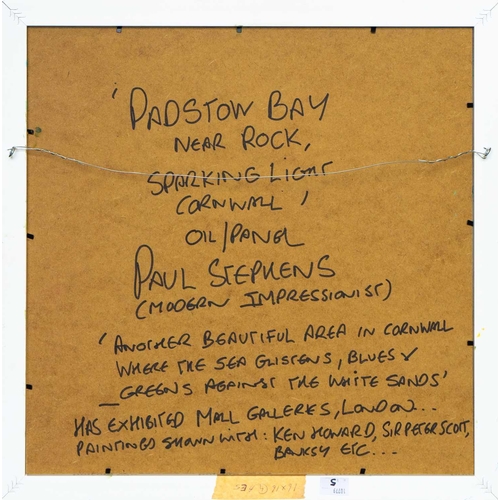 ' PADSTOW BAY
NEAR ROCK,
SPARKING LIGHT
CORNWALL '
OIL/PANEL
PAUL STEPHENS
(MODERN IMPRESSIONIST)
' ANOTHER BEAUTIFUL AREA IN CORNWALL
WHERE THE SEA GLISTENS, BLUES &
GREENS AGAINST THE WHITE SANDS'
HAS EXHIBITED MALL GALLERIES, LONDON...
PAINTINGS SHOWN WITH: KEN HOWARD, SIR PETER SCOTT,
BANKSY ETC...